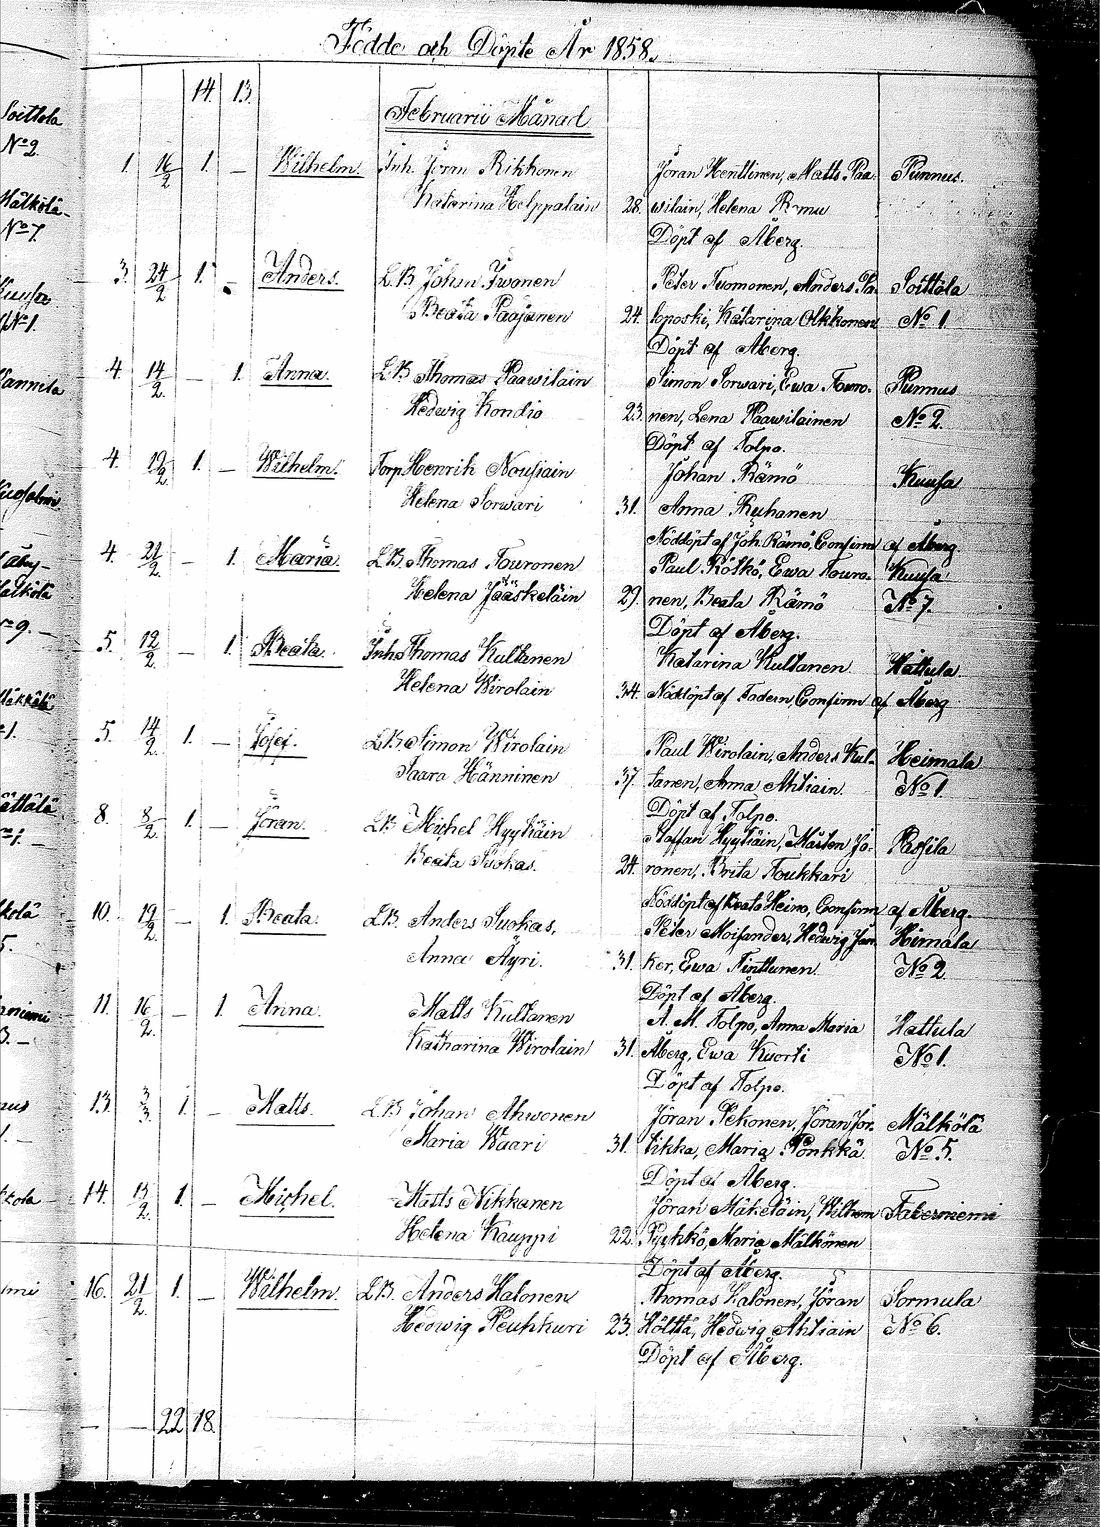 Födde och Döpte År 1858.
14. 13.
Februarii Månad
1. 16/2 1. — Wilhelm. Inh. Jöran Rikkonen Jöran Henttinen, Matts Paa- Punnus.
Katarina Helppalain 28. wilain, Helena Remu
Döpt af Åberg.
3. 24/2 1. — Anders. L.B. Johan Iwanen Peter Tuomonen, Anders Pa- Soittola
Beata Paajanen 24. loposki, Katarina Olkkonen No 1.
Döpt af Åberg.
4. 14/2 — 1. Anna. L.B. Thomas Paawilain Simon Sorwari, Ewa Touro- Punnus
Hedwig Kondia 23. nen, Lena Paawilainen No 2.
Döpt af Tolpo.
4. 19/2 1. — Wilhelm. Torp. Henrih Nousiain Johan Rämö Kuusa
Helena Sorwari 31. Anna Ruhanen
Nöddöpt af Joh. Rämö, Confirm af Åberg
4. 21/2 — 1. Maria. L.B. Thomas Touronen Paul Rötkö, Ewa Touro- Kuusa
Helena Jääskeläin 29. nen, Beata Rämö No 7.
Döpt af Åberg.
5. 12/2 — 1. Beata. Inhs Thomas Kultanen Katarina Kultanen Hättula.
Helena Wirolain 34. Nöddöpt af Fadern, Confirm af Åberg
5. 14/2 1. — Josef. L.B. Simon Wirolain Paul Wirolain, Anders Kul- Heimala
Saara Hänninen 37. tanen, Anna Ahtiain. No 1.
Döpt af Tolpo.
8. 8/2 1. — Jöran. L.B. Michel Hyytiäin Staffan Hyytiäin, Mårten Jä- Rosila
Beata Suokas. 24. ronen, Brita Toukkari
Nöddöpt af Beata Heino, Confirm af Åberg.
10. 19/2 — 1. Beata. L.B. Anders Suokas, Peter Moisander, Hedwig Jun- Himala
Anna Äyri. 31. ker, Ewa Tinttunen No 2
Döpt af Åberg.
11. 16/2 — 1. Anna. Matts Kultanen A. M. Tolpo, Anna Maria Hattula
Katharina Wirolain 31. Åberg, Ewa Kuorti No 1.
Döpt af Tolpo.
13. 3/3 1. — Matts. L.B. Johan Ahwonen Jöran Pekonen, Jöran Jör- Mälkölä
Maria Waari 31. tikka, Maria Pönkkä No 5.
Döpt af Åberg.
14. 15/2 1. — Michel. Matts Nikkanen Jöran Mäkeläin, Wilhem Taberniemi
Helena Kauppi 22. Pyykkö, Maria Mälkönen
Döpt af Åberg.
16. 21/2 1. — Wilhelm. L.B. Anders Halonen Thomas Halonen, Jöran Sormula
Hedwig Peuhkuri 23. Hölttä, Hedwig Ahtiain No 6.
Döpt af Åberg.
— — 22 18.